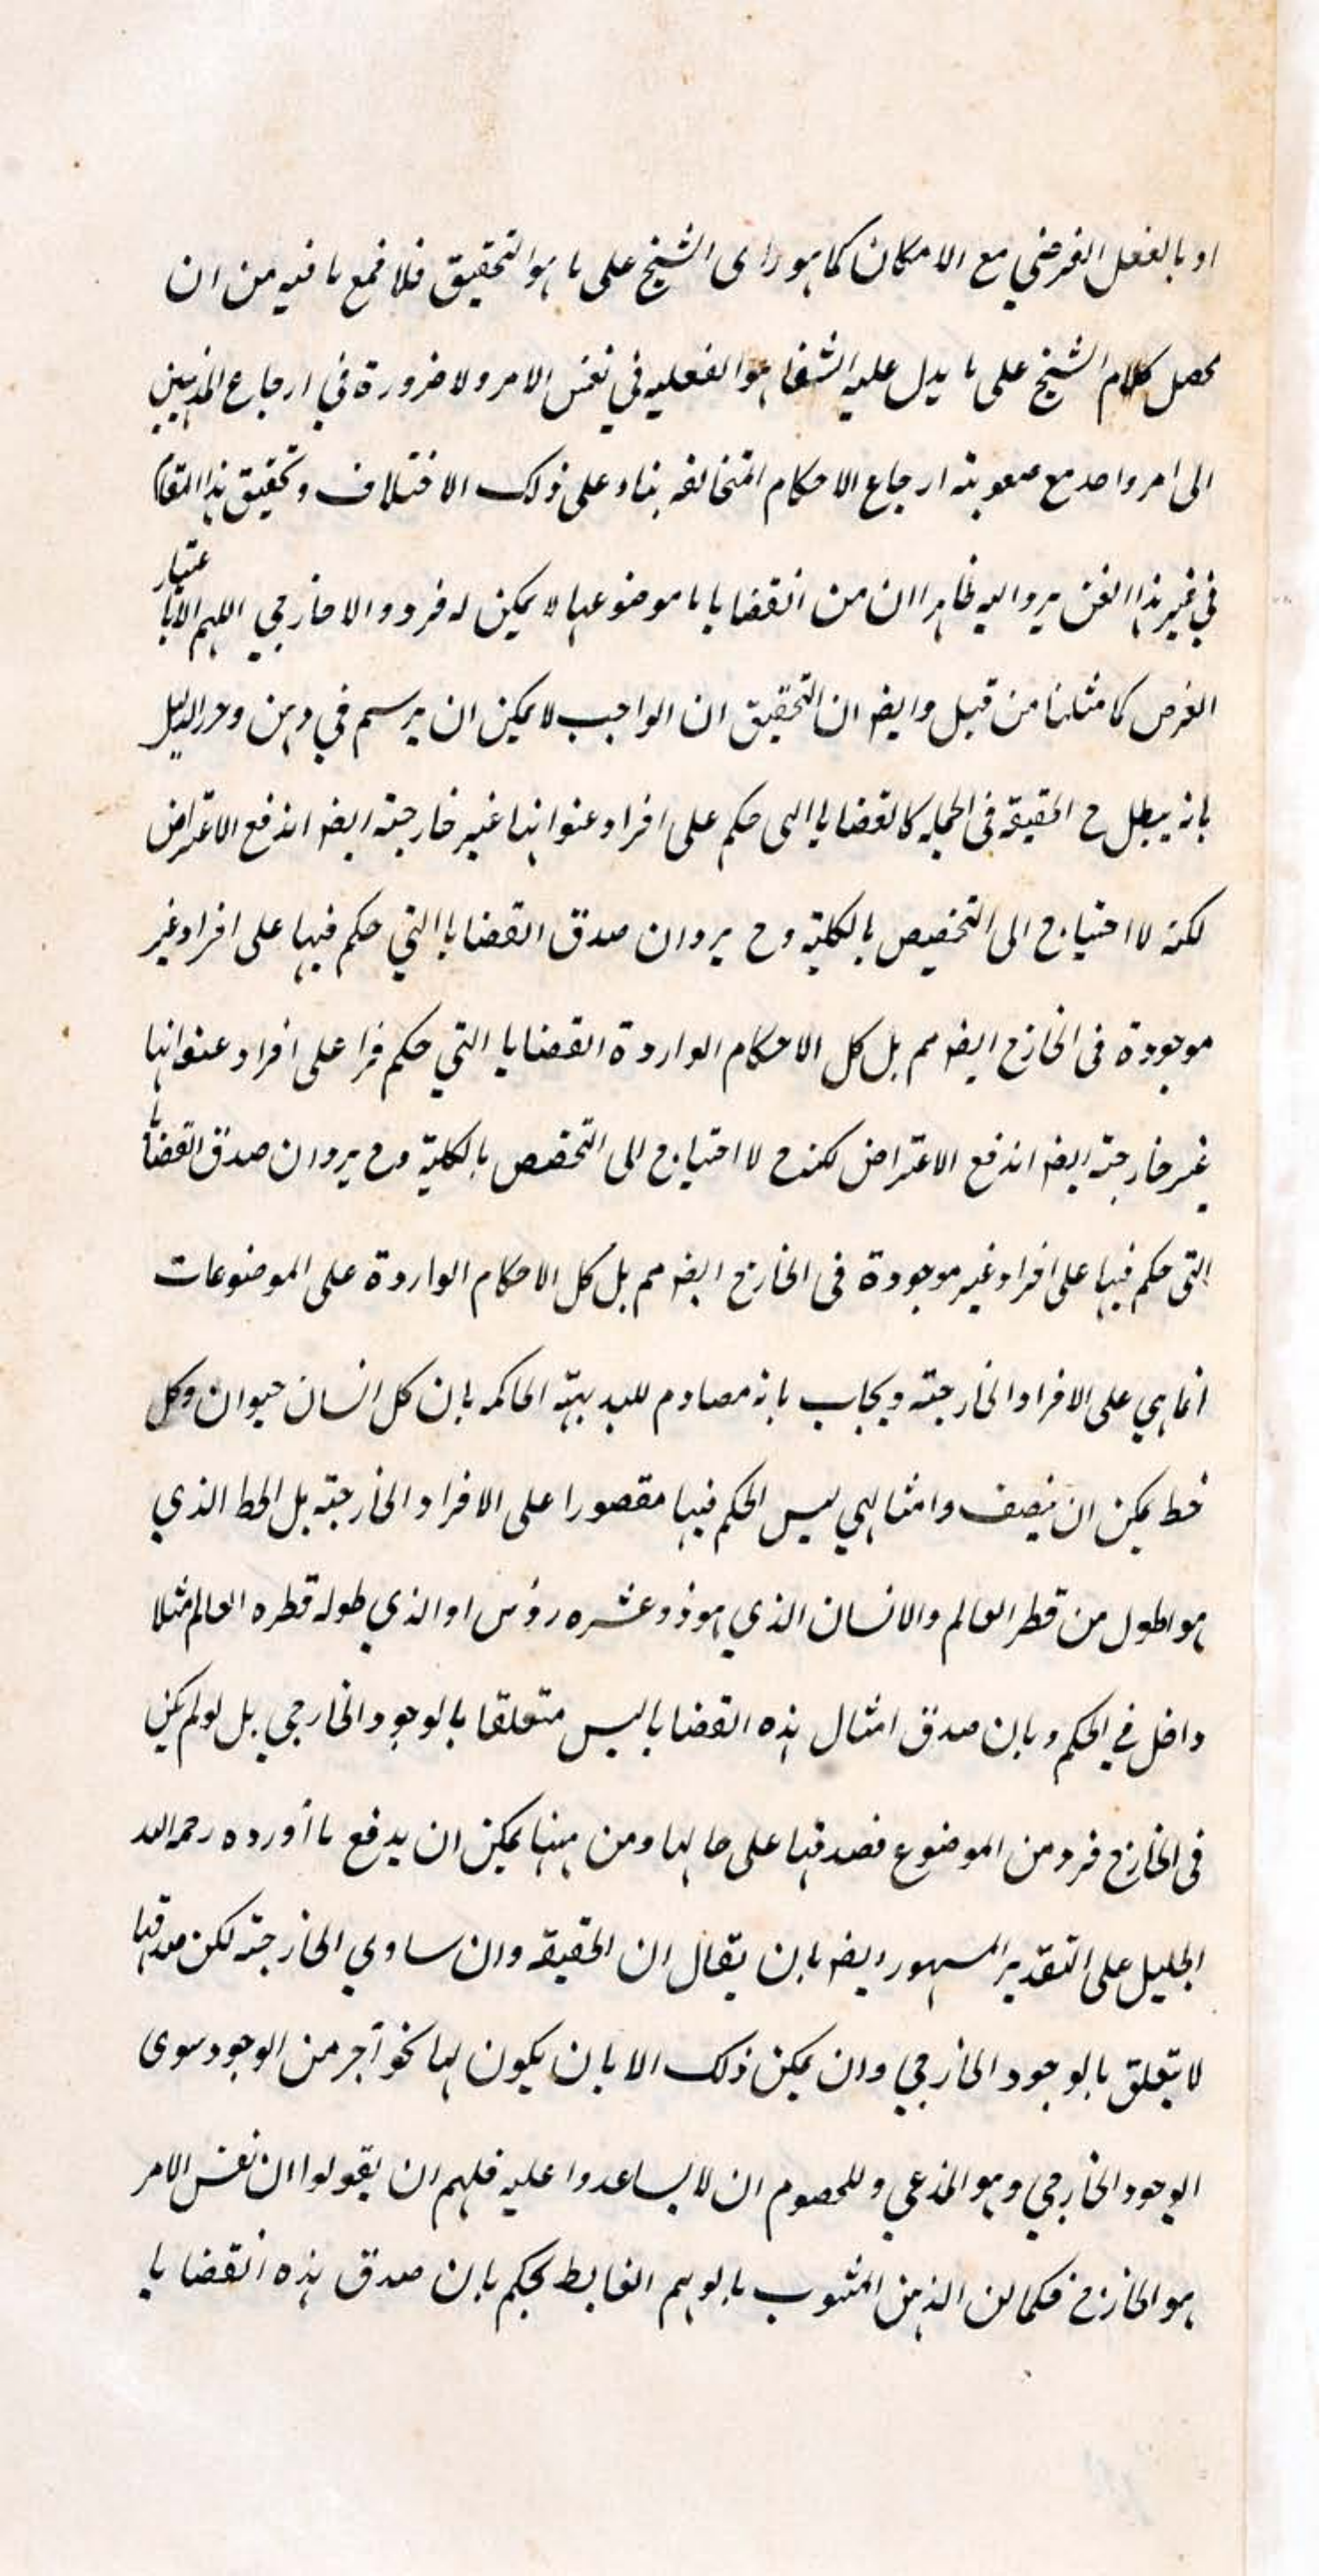 او بالفعل الفرضي مع الامكان كما هو راى الشيخ على ما هو التحقيق فلا فمع ما فيه من ان
محصل كلام الشيخ على ما يدل عليه الشفا هو الفعليه في نفس الامر ولا ضرورة في ارجاع المذهبين
الى امر واحد مع صعوبته ارجاع الاحكام المتخالفه بناء على ذلك الاختلاف وتحقيق هذا المقام
في غير هذا الفن يرد اليه ظاهرا ان من القضايا ما موضوعها لا يمكن له فرد والا خارجي اللهم الا باعتبار
الفرض كما مثلنا من قبل وايضه ان التحقيق ان الواجب لا يمكن ان يرسم في ذهن وحرر الدليل
بانه يبطل ح الحقيقه فى الجمله كالقضايا التى حكم على افراد عنوانها غير خارجته ايضه اندفع الاعتراض
لكنه لا احتياج الى التخصيص بالكليته وح يرد ان صدق القضايا التي حكم فيها على افراد غير
موجودة فى الخارج ايضه مم بل كل الاحكام الواردة القضايا التي حكم فرا على افراد عنوانها
غير خارجته ايضه اندفع الاعتراض لكنه ح لا احتياج الى التخصص بالكليته وح يرد ان صدق القضايا
التى حكم فيها على افراد غير موجودة فى الخارج ايضه مم بل كل الاحكام الواردة على الموضوعات
انما هي على الافراد الخارجته ويجاب بانه مصادم للبديهيته الحاكمه بان كل انسان حيوان وكل
خط يمكن ان ينصف وامثالهي ليس الحكم فيها مقصورا على الافراد الخارجته بل الخط الذي
هو اطول من قطر العالم والانسان الذي هو ذو عشره رؤس او الذي طوله قطره العالم مثلا
داخل في الحكم وبان صدق امثال هذه القضايا ليس متعلقا بالوجود الخارجي بل لو لم يكن
فى الخارج فرد من الموضوع فصدقها على حالها ومن ههنا يمكن ان يدفع ما أورده رحمه الله
الجليل على التقدير المسهور ايضه بان يقال ان الحقيقه وان ساوي الخارجته لكن صدقها
لا يتعلق بالوجود الخارجي وان يمكن ذلك الا بان يكون لها نحو آجر من الوجود سوى
الوجود الخارجي وهو المدعي وللخصوم ان لا يساعدوا عليه فلهم ان يقولوا ان نفس الامر
هو الخارج فكما لن الذهن المشوب بالوهم الغابط يحكم بان صدق هذه القضايا